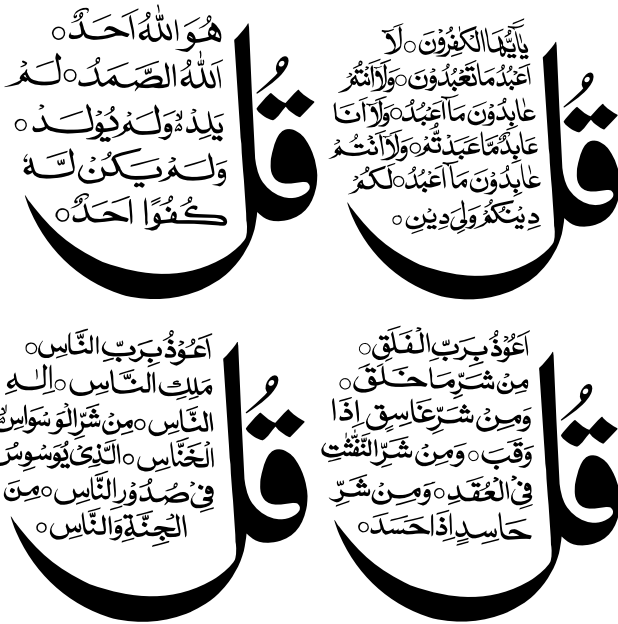 قُلْ
يٰۤاَيُّهَا الْكٰفِرُوْنَ ○ لَاۤ
اَعْبُدُ مَا تَعْبُدُوْنَ ○ وَلَاۤ اَنْتُمْ
عٰبِدُوْنَ مَاۤ اَعْبُدُ ○ وَلَاۤ اَنَا
عَابِدٌ مَّا عَبَدْتُّمْ ○ وَلَاۤ اَنْتُمْ
عٰبِدُوْنَ مَاۤ اَعْبُدُ ○ لَكُمْ
دِيْنُكُمْ وَلِيَ دِيْنِ ○
قُلْ
هُوَ اللّٰهُ اَحَدٌ ○
اَللّٰهُ الصَّمَدُ ○ لَمْ
يَلِدْ ۙ وَلَمْ يُوْلَدْ ○
وَلَمْ يَكُنْ لَّهٗ
كُفُوًا اَحَدٌ ○
قُلْ
اَعُوْذُ بِرَبِّ الْفَلَقِ ○
مِنْ شَرِّ مَا خَلَقَ ○
وَمِنْ شَرِّ غَاسِقٍ اِذَا
وَقَبَ ○ وَمِنْ شَرِّ النَّفّٰثٰتِ
فِي الْعُقَدِ ○ وَمِنْ شَرِّ
حَاسِدٍ اِذَا حَسَدَ ○
قُلْ
اَعُوْذُ بِرَبِّ النَّاسِ ○
مَلِكِ النَّاسِ ○ اِلٰهِ
النَّاسِ ○ مِنْ شَرِّ الْوَسْوَاسِ ۙ
الْخَنَّاسِ ○ الَّذِيْ يُوَسْوِسُ
فِيْ صُدُوْرِ النَّاسِ ○ مِنَ
الْجِنَّةِ وَالنَّاسِ ○